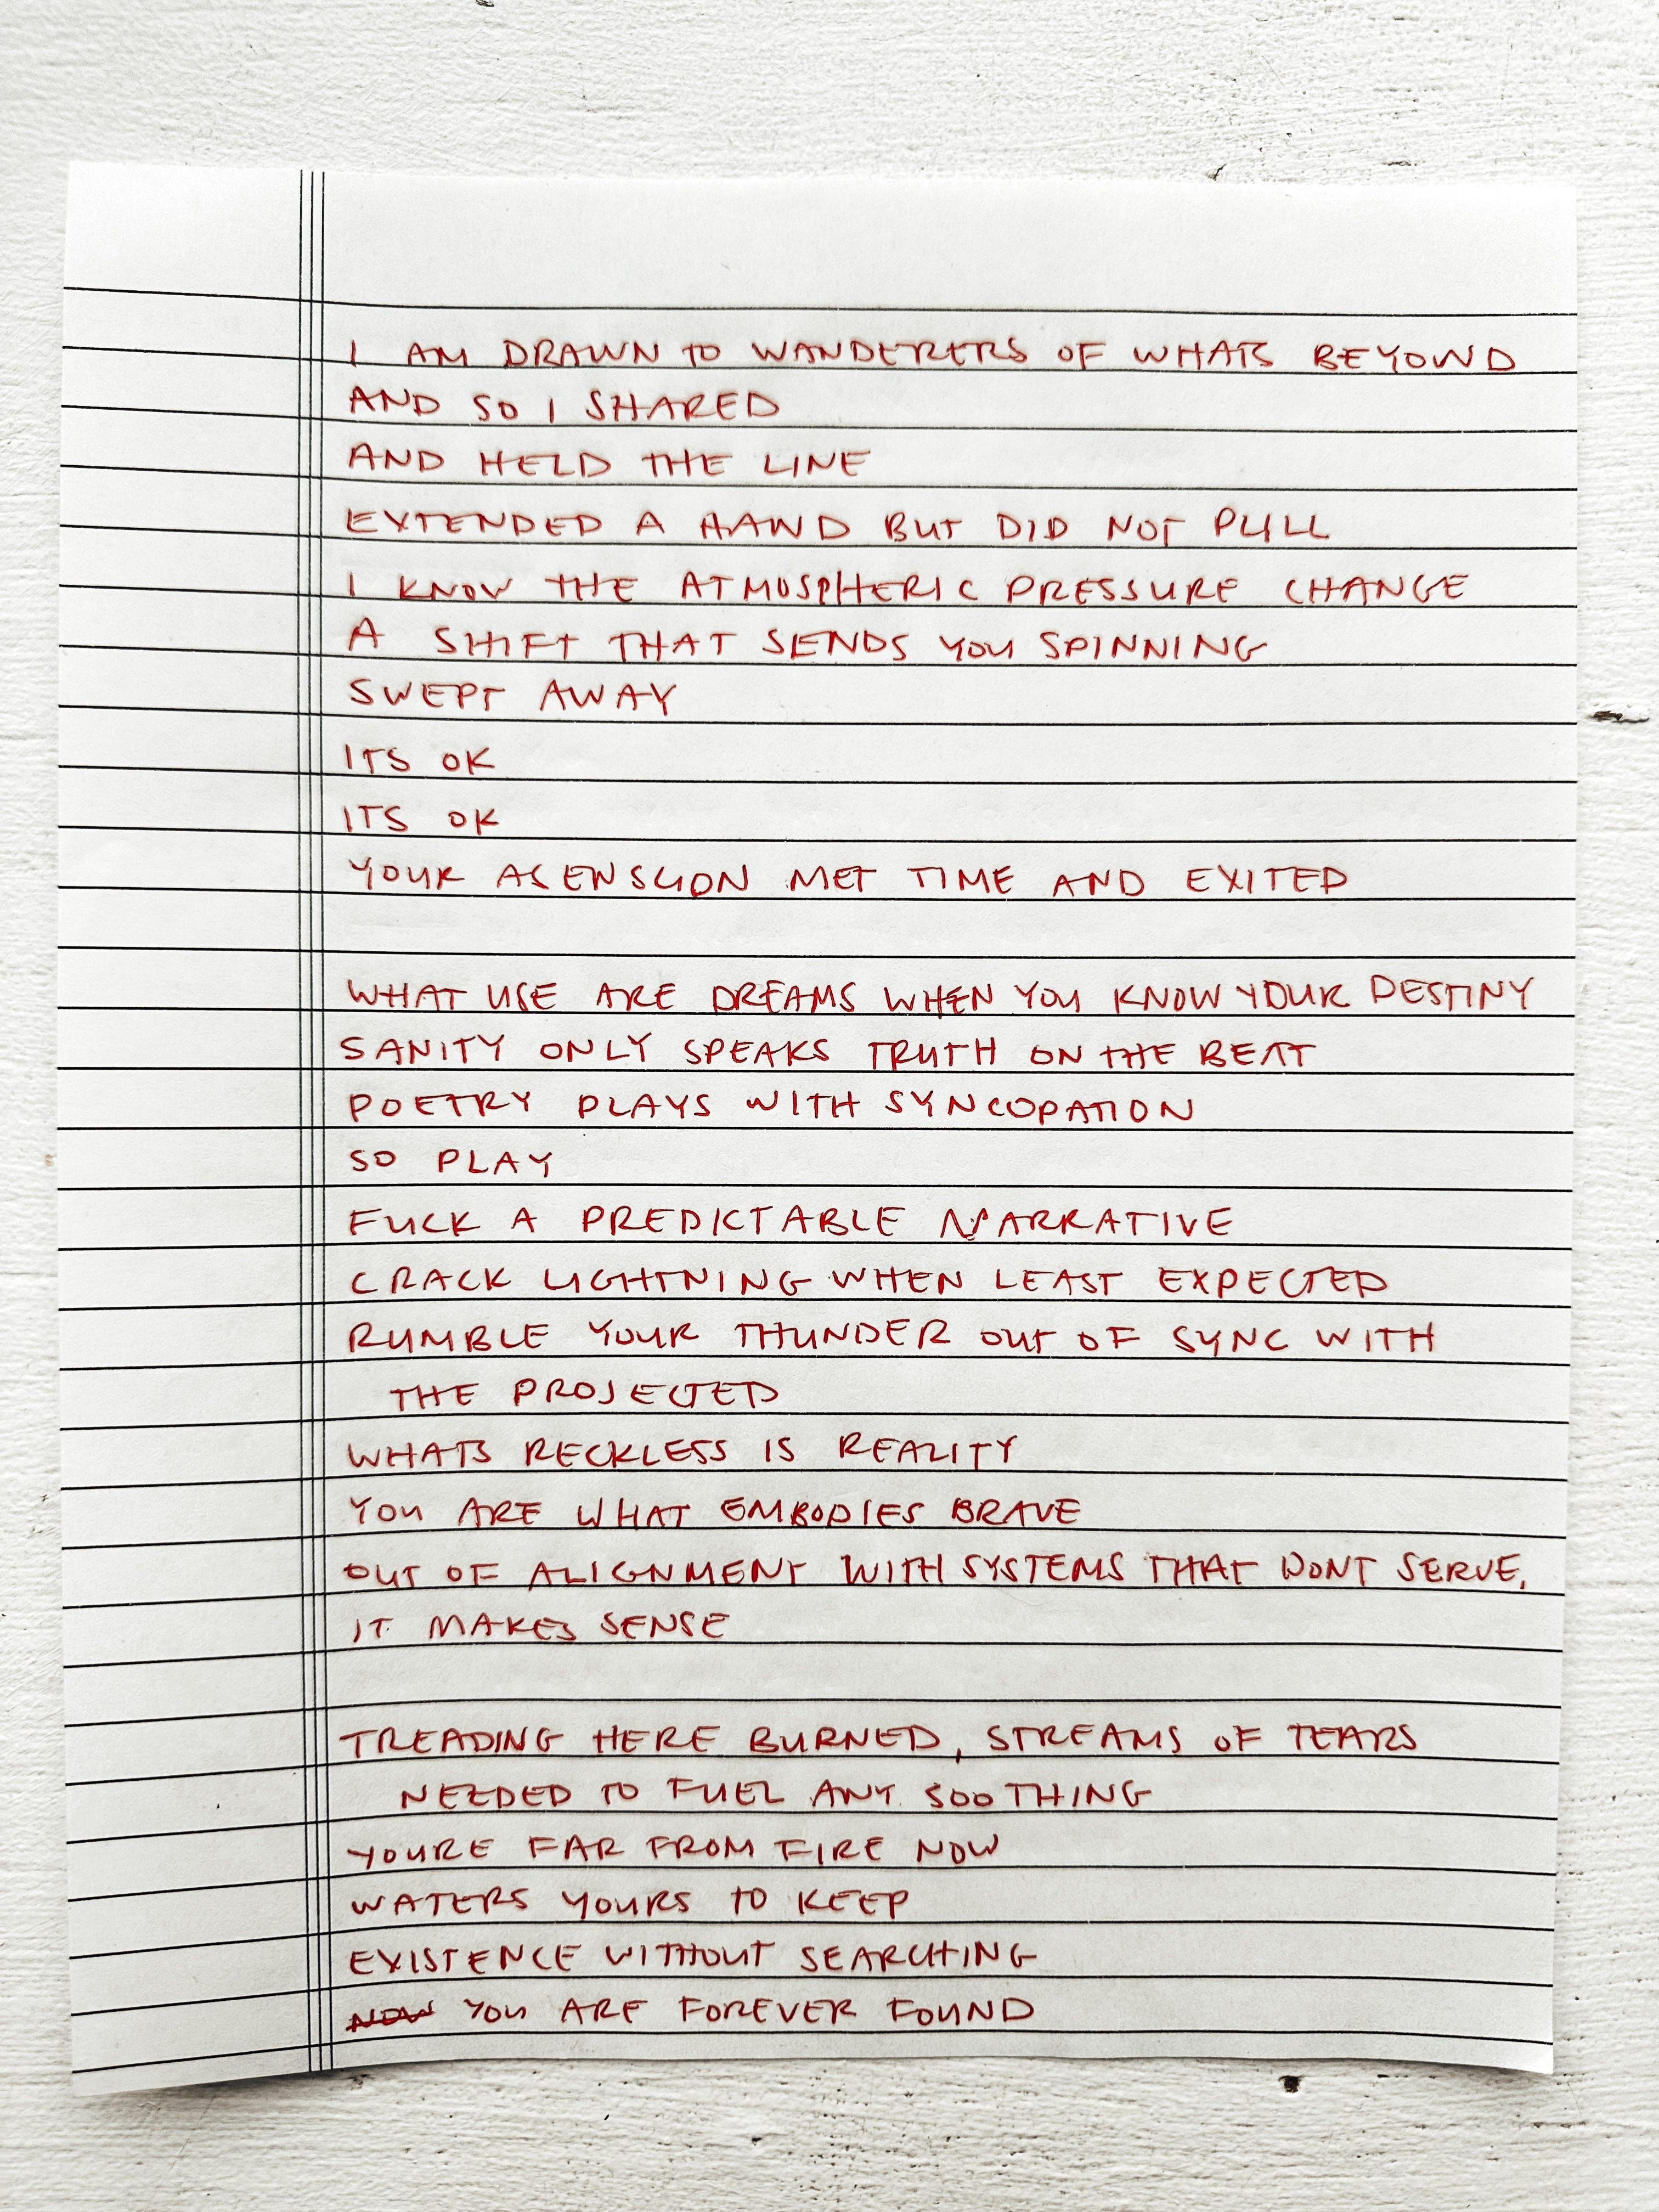 I AM DRAWN TO WANDERERS OF WHATS BEYOND
AND SO I SHARED
AND HELD THE LINE
EXTENDED A HAND BUT DID NOT PULL
I KNOW THE ATMOSPHERIC PRESSURE CHANGE
A SHIFT THAT SENDS YOU SPINNING
SWEPT AWAY
ITS OK
ITS OK
YOUR ASENSCION MET TIME AND EXITED
WHAT USE ARE DREAMS WHEN YOU KNOW YOUR DESTINY
SANITY ONLY SPEAKS TRUTH ON THE BEAT
POETRY PLAYS WITH SYNCOPATION
SO PLAY
FUCK A PREDICTABLE NARRATIVE
CRACK LIGHTNING WHEN LEAST EXPECTED
RUMBLE YOUR THUNDER OUT OF SYNC WITH
THE PROJECTED
WHATS RECKLESS IS REALITY
YOU ARE WHAT EMBODIES BRAVE
OUT OF ALIGNMENT WITH SYSTEMS THAT WONT SERVE,
IT MAKES SENSE
TREADING HERE BURNED, STREAMS OF TEARS
NEEDED TO FUEL ANY SOOTHING
YOURE FAR FROM FIRE NOW
WATERS YOURS TO KEEP
EXISTENCE WITHOUT SEARCHING
NOW YOU ARE FOREVER FOUND